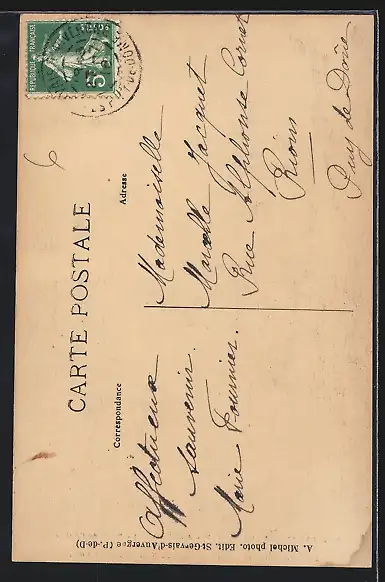 RÉPUBLIQUE FRANÇAISE
POSTES
5
CARTE POSTALE
Correspondance
Adresse
Affectueux
souvenir.
Marie Fournier.
Mademoiselle
Marcelle Jacquet
Rue Alphonse Cornet
Riom
Puy de Dôme
A. Michel photo. Edit. St-Gervais-d'Auvergne (P.-de-D)